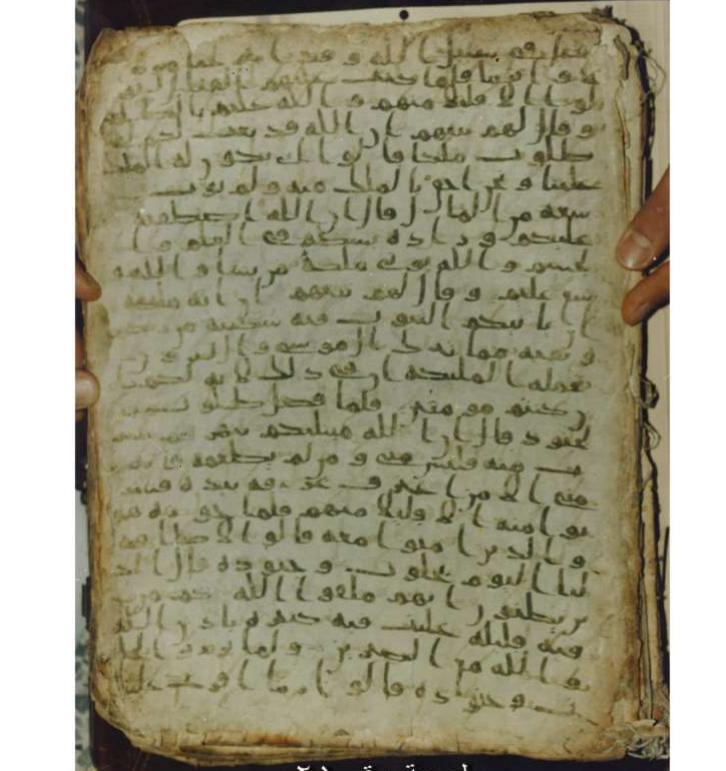 نقتل في سبيل الله و قد ا خر جنا من
و ا بنا ينا فلما كتب عليهم ا لقتل
تولو ا ا لا قليلا منهم و ا لله عليم با لظلمين
و قا ل لهم نبيهم ا ن ا لله قد بعث لكم
طلوت ملكا قا لو ا ا نى يكو ن له ا لملك
علينا و نحن ا حق با لملك منه و لم يوت
سعة من ا لما ل قا ل ا ن ا لله ا صطفيه
عليكم و ز ا د ه بسطة في ا لعلم و ا
لجسم و ا لله يوتي ملكه من يشا و ا لله و
سع عليم و قا ل لهم نبيهم ا ن ا ية ملكه
ا ن يا تيكم ا لتبو ت فيه سكينة من ربكم
و بقية مما تر ك ا ل موسى و ا ل هر و ن
تحمله ا لمليكة ا ن في ذ لك لا ية لكم ا
ن كنتم مو منين فلما فصل طلو ت با
لجنو د قا ل ا ن ا لله مبتليكم بنهر فمن شر
ب منه فليس مني و من لم يطعمه فا نه
مني ا لا من ا غتر ف غر فة بيد ه فشر
بو ا منه ا لا قليلا منهم فلما جو ز ه هو
و ا لذ ين ا منو ا معه قا لو ا لا طا قة
لنا ا ليو م بجلو ت و جنو د ه قا ل ا لذ
ين يظنو ن ا نهم ملقو ا ا لله كم من
فية قليلة غلبت فية كثير ة با ذ ن ا لله
و ا لله مع ا لصبر ين و لما بر ز و ا لجا
لو ت و جنو د ه قا لو ا ر بنا ا فر غ علينا